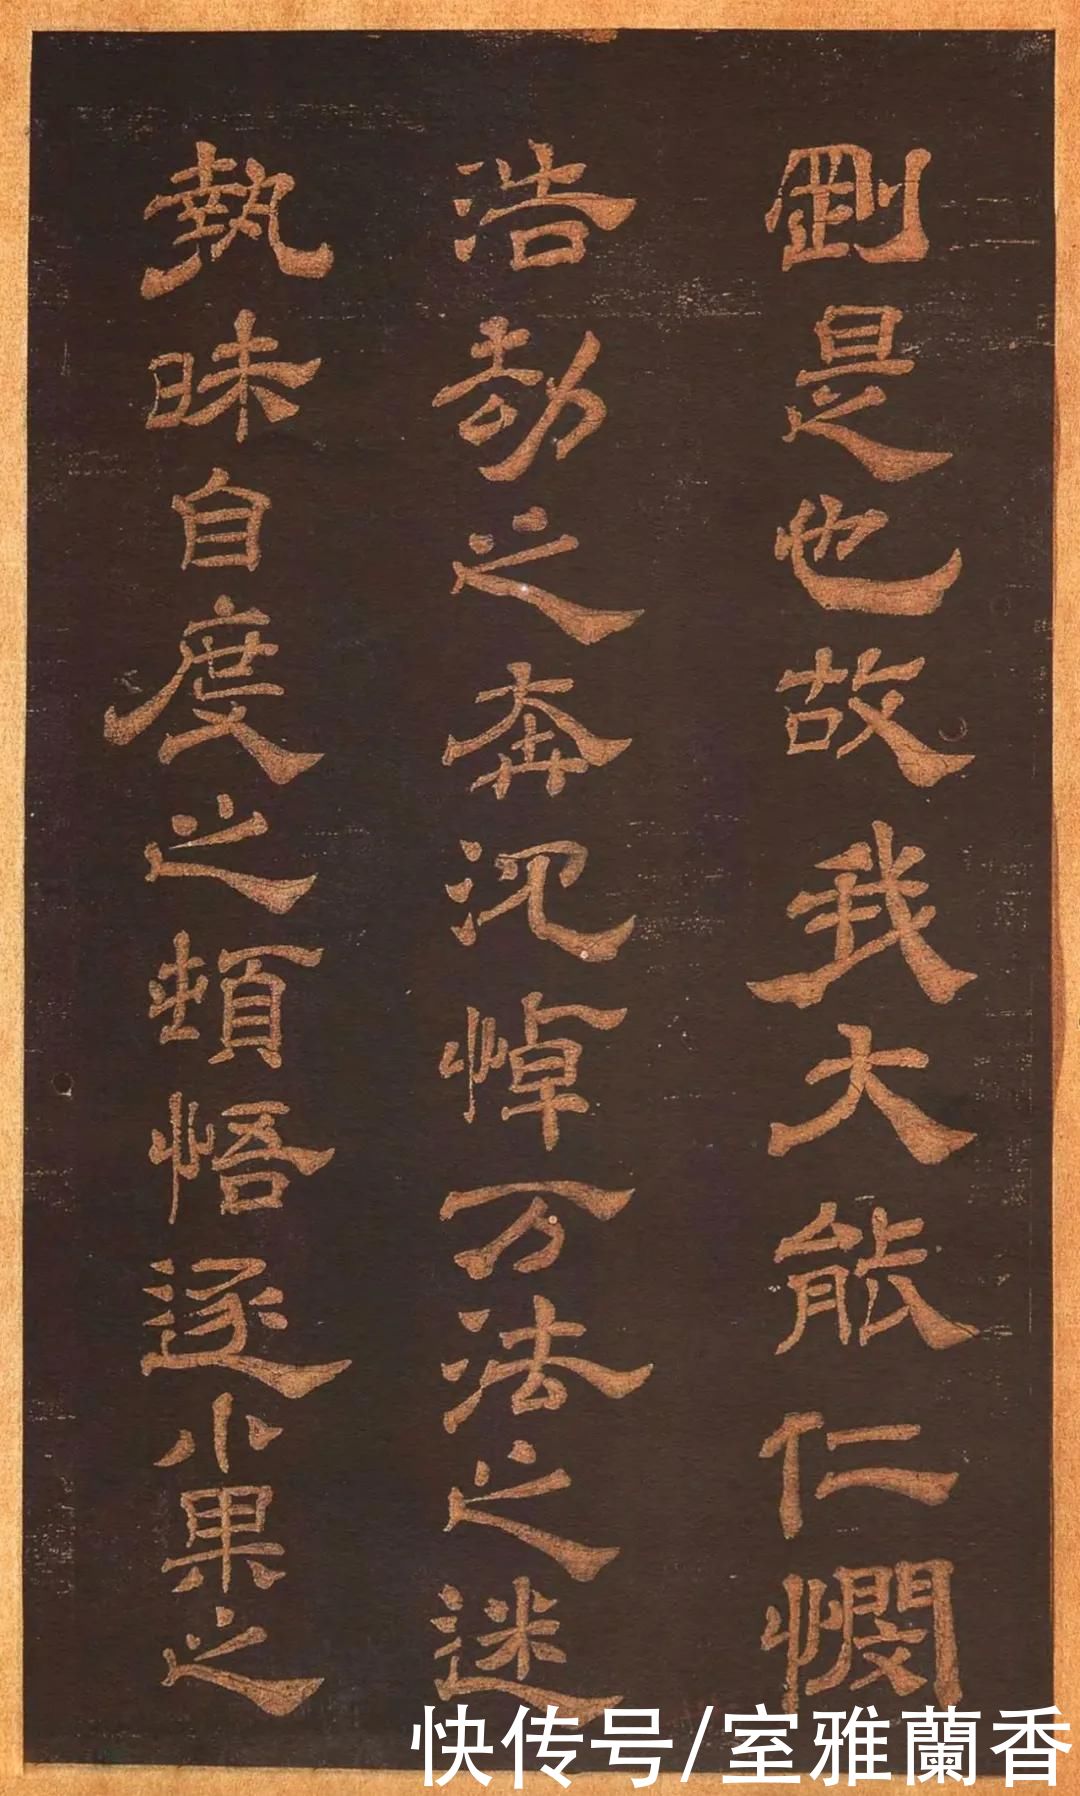 剛是也故我大能仁憫
浩劫之奔沉悼万法之迷
執昧自度之頓悟逐小果之
快传号/室雅蘭香